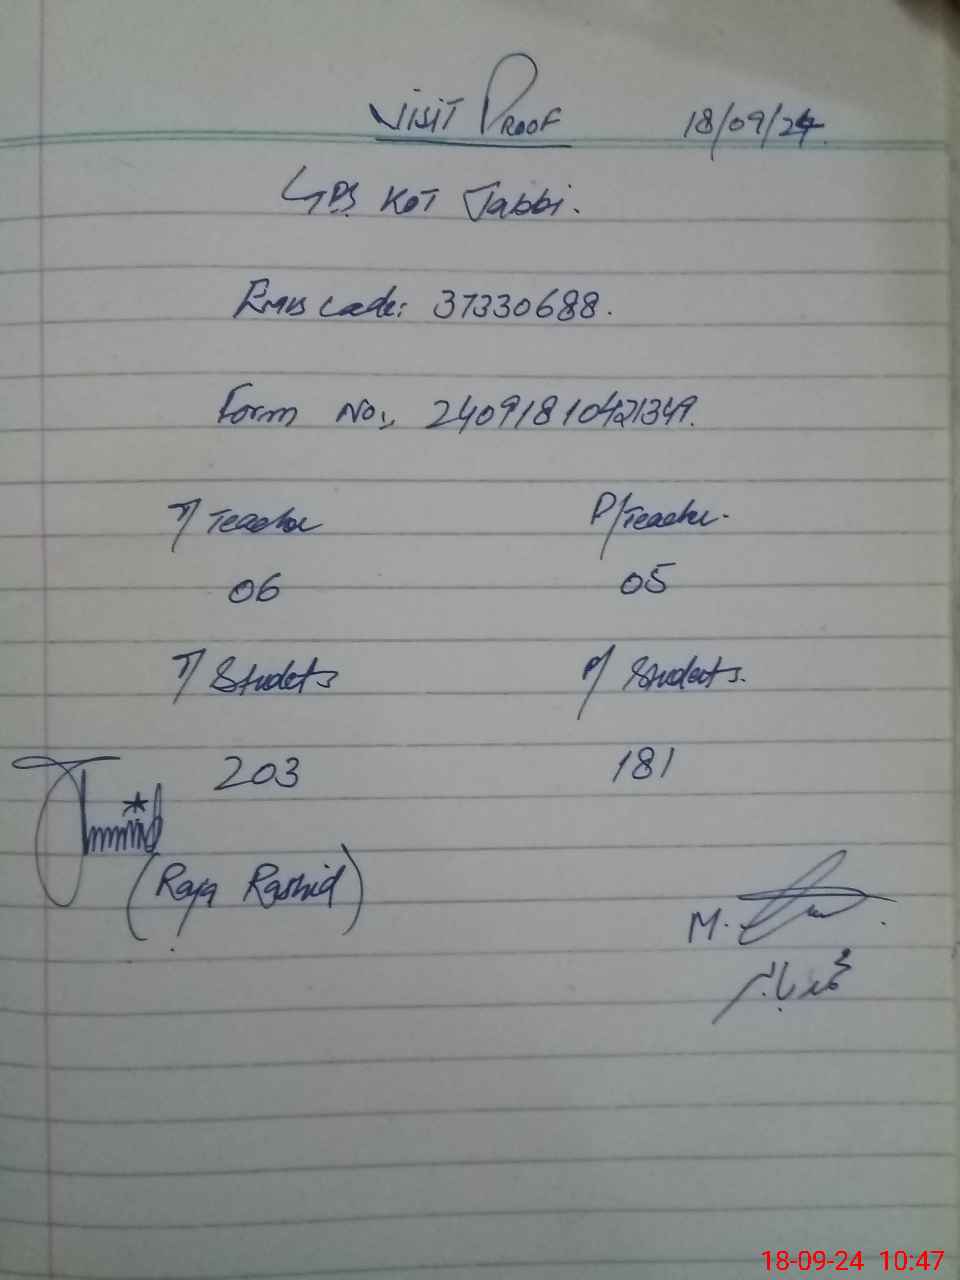 Visit Proof 18/09/24
GPS Kot Jabbi.
Emis code: 37330688.
Form No:, 24091810421349.
T/ Teacher P/Teacher.
06 05
T/ Students P/ Students.
203 181
(Raja Rashid)
M.
محمد بابر
18-09-24 10:47